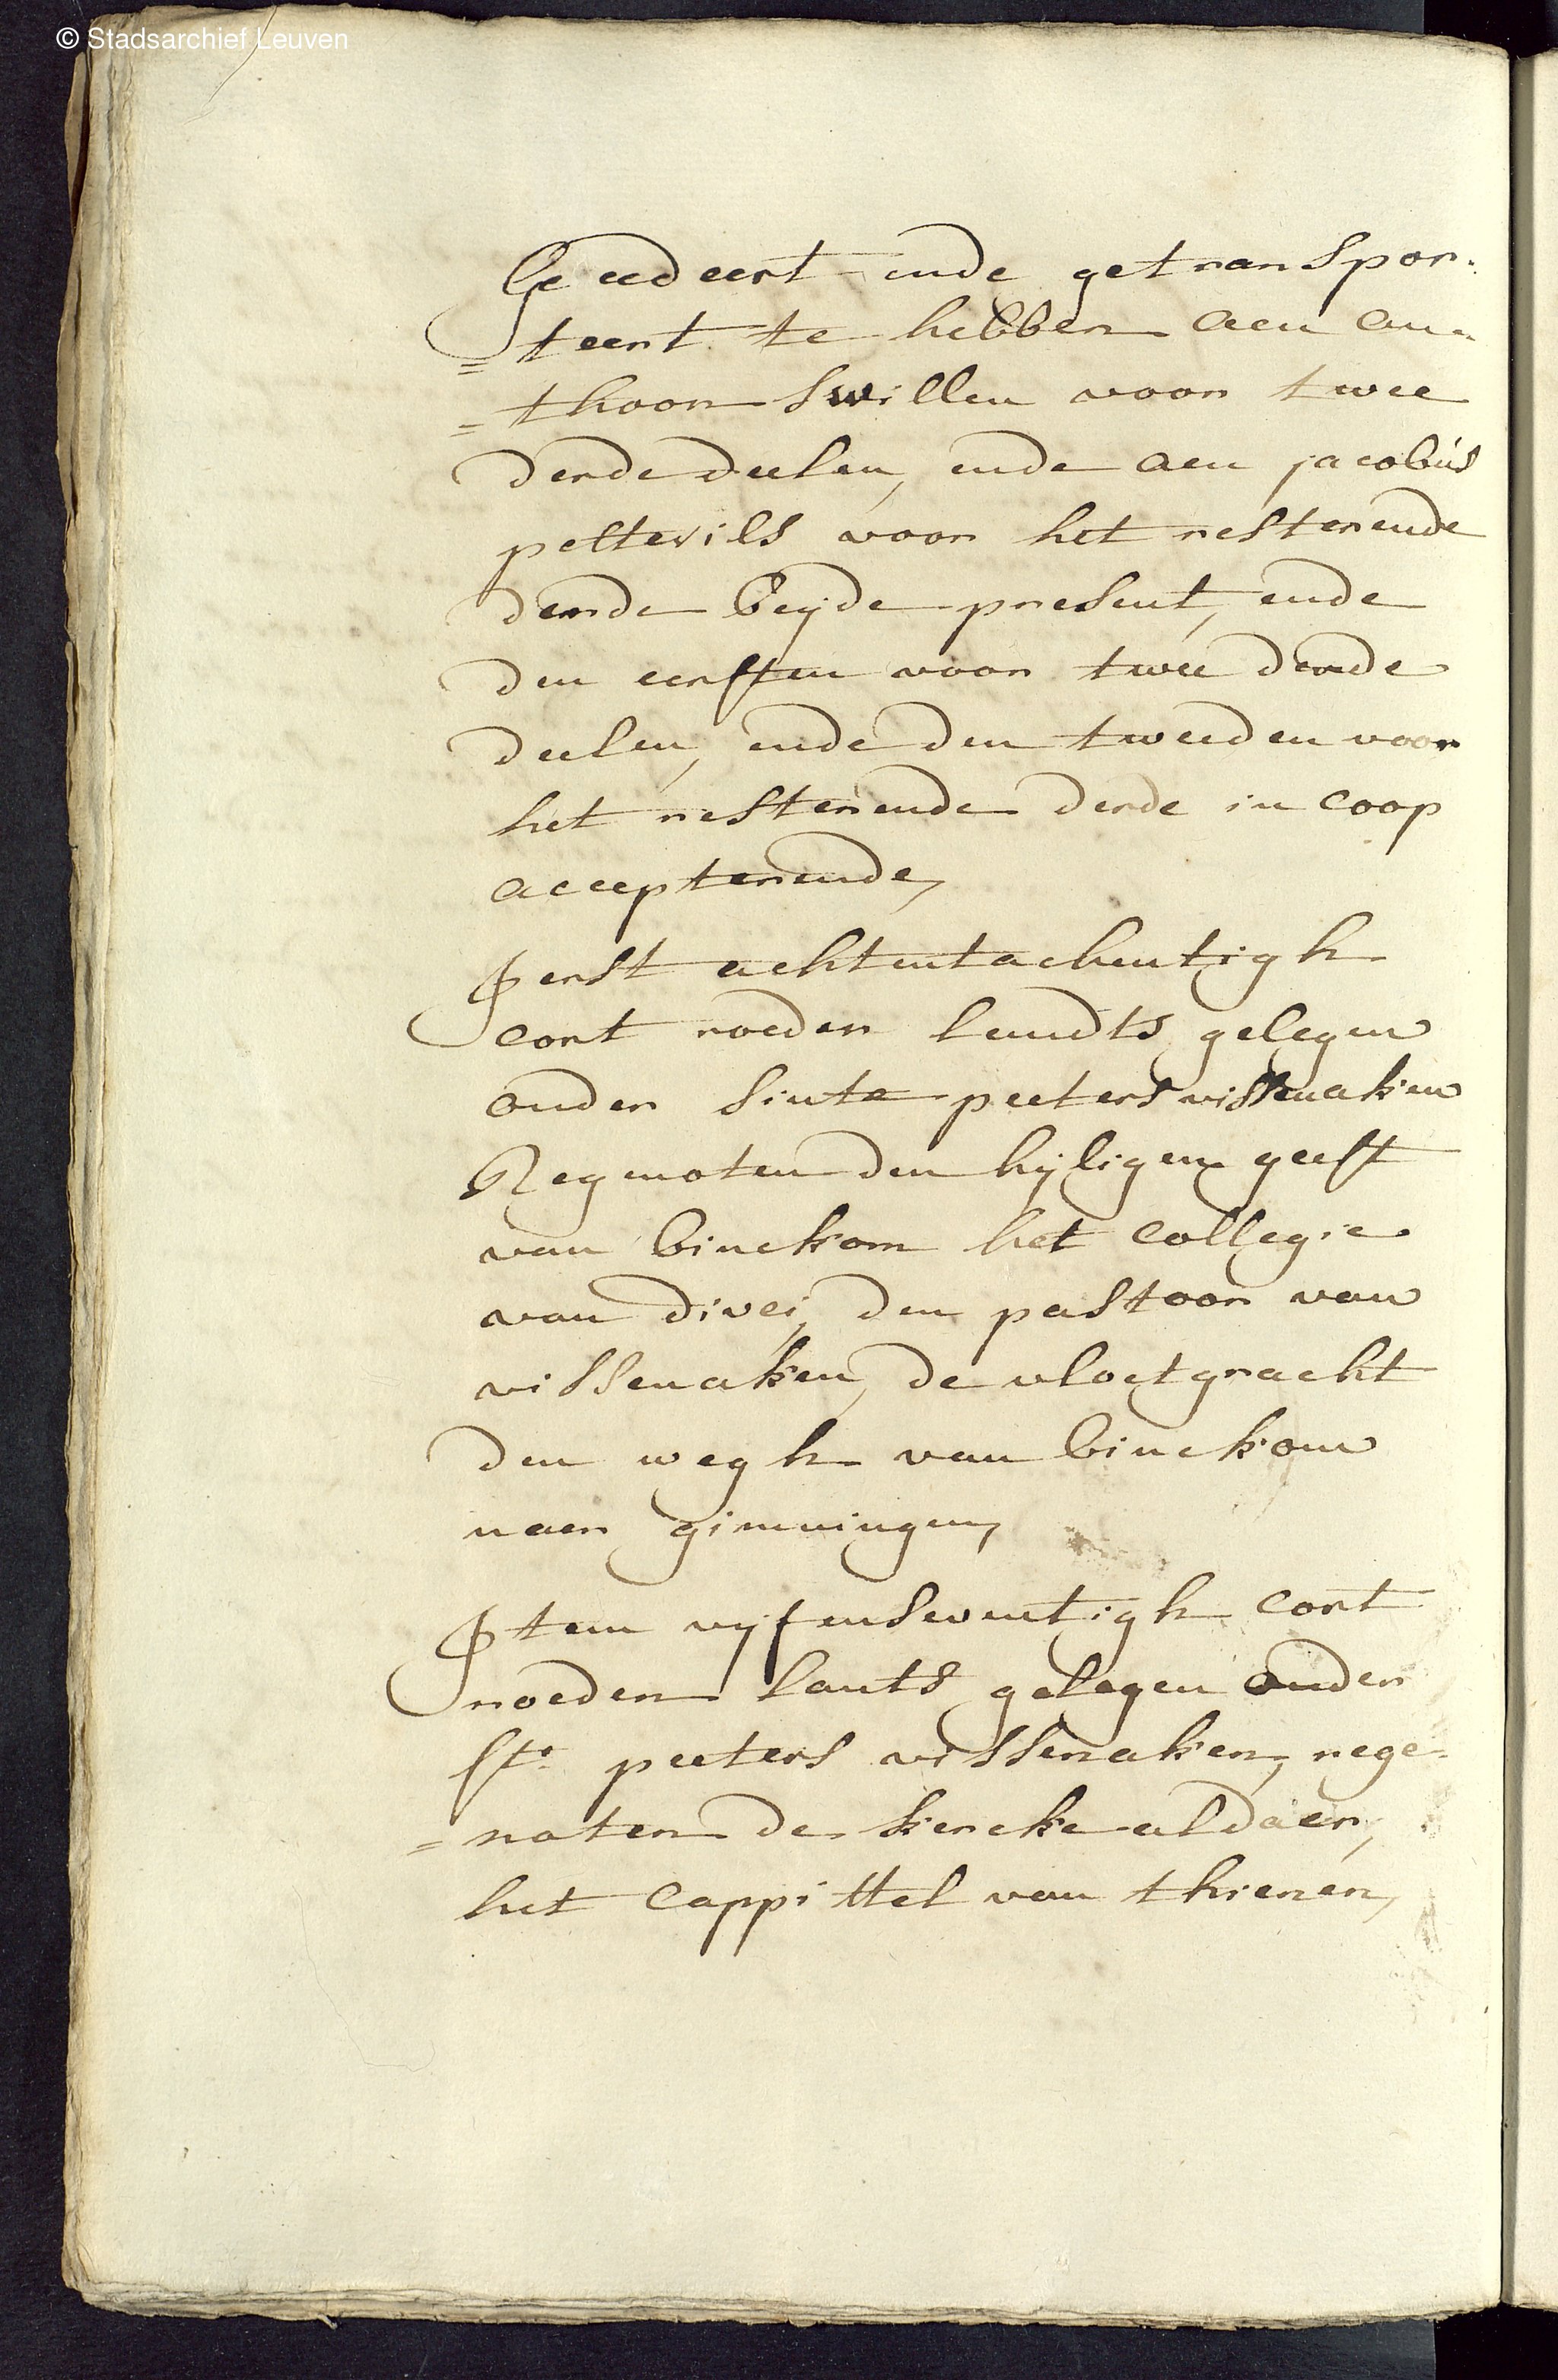 © Stadsarchief Leuven
Gecedeert ende getranspor-
=teert te hebben aen an-
=thoon Swillen voor twee
derdedeelen, ende aen jacobus
peltevils voor het resterende
derde beyde present, ende
den eersten voor twee derde
deelen, ende den tweeden voor
het resterende derde in coop
accepterende,
Ierst achtentachentigh
cort roeden landts gelegen
onder sinte peeters vissenaken
Regenoten den hyligen geest
van binckom het collegie
van divei, den pastoor van
vissenaken, de vloetgracht
den wegh van binckom
naer gimmingen,
Item vyfenseventigh cort
roeden lants gelegen onder
ste peeters vissenaken, rege-
=noten de kercke aldaer,
het Cappittel van thienen,